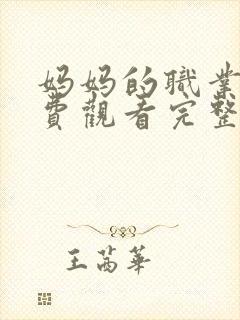 妈妈的職業
費觀看完整
王茜華